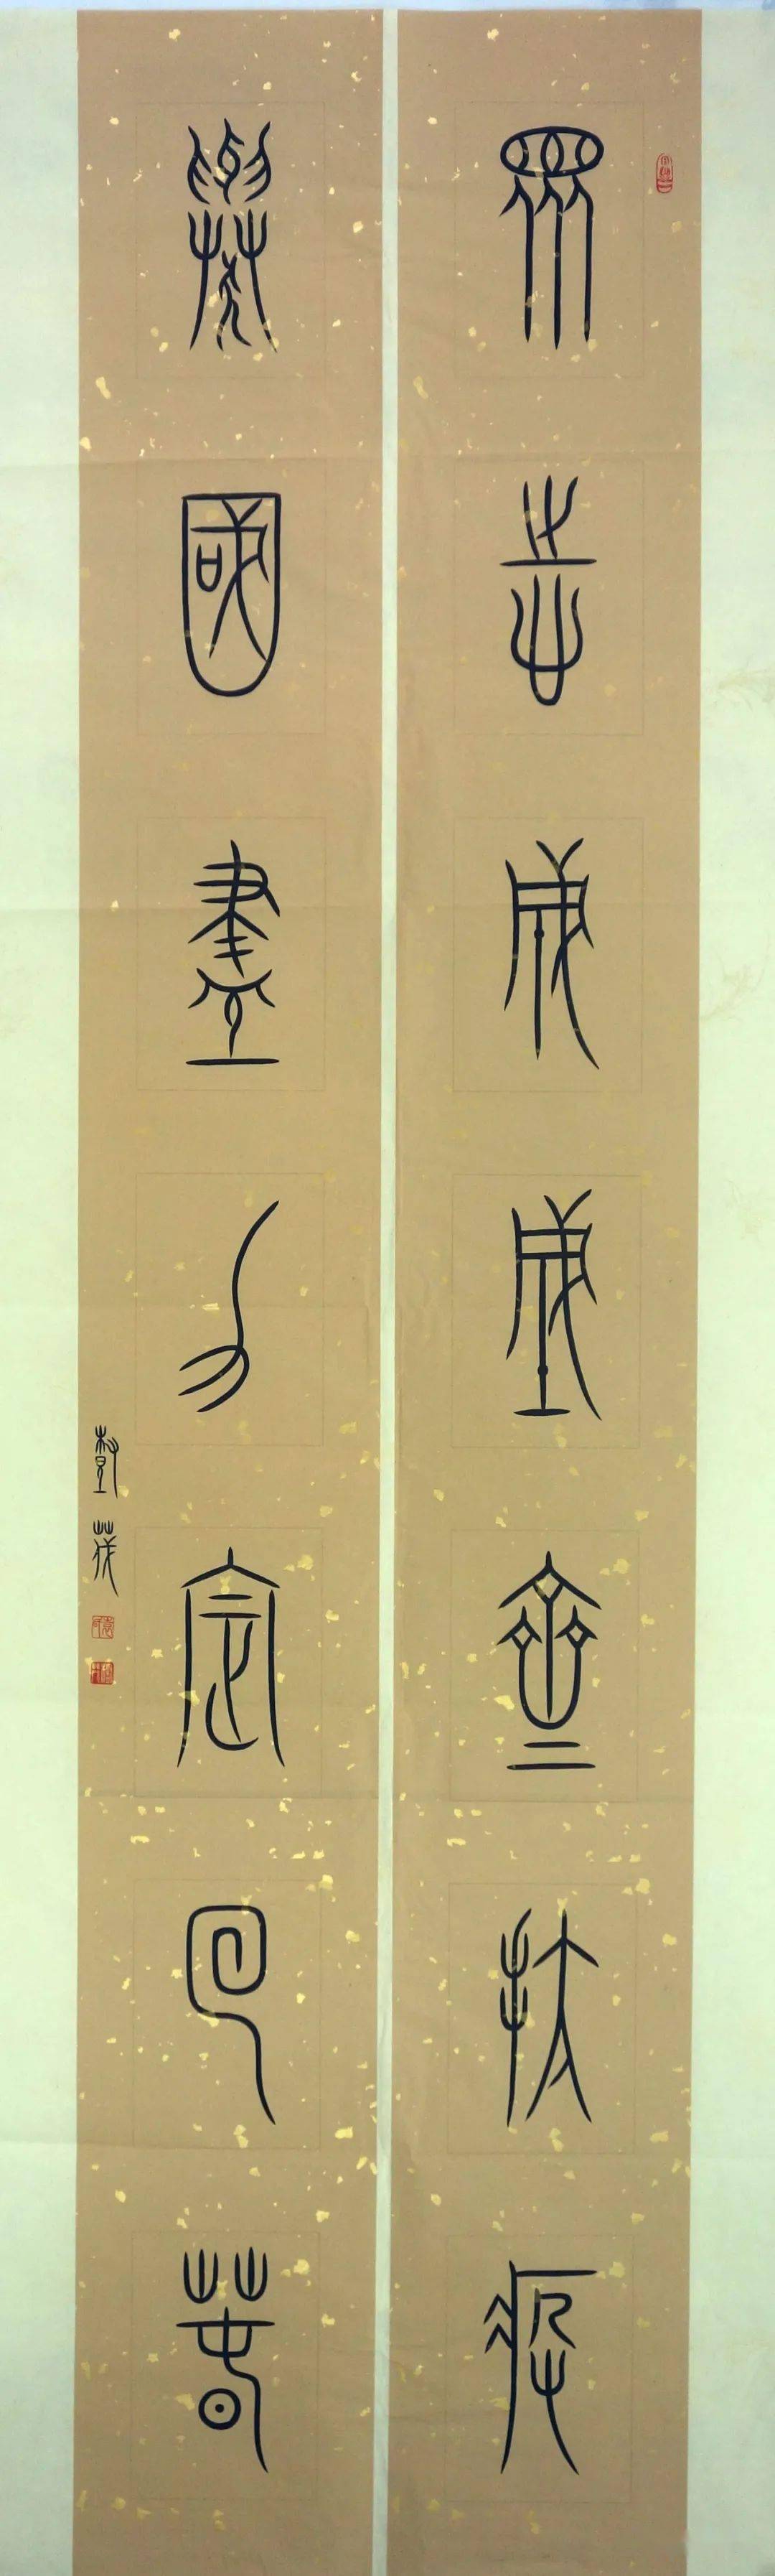 眾志成城齊抗疫
舉國盡力定回春
樹茂